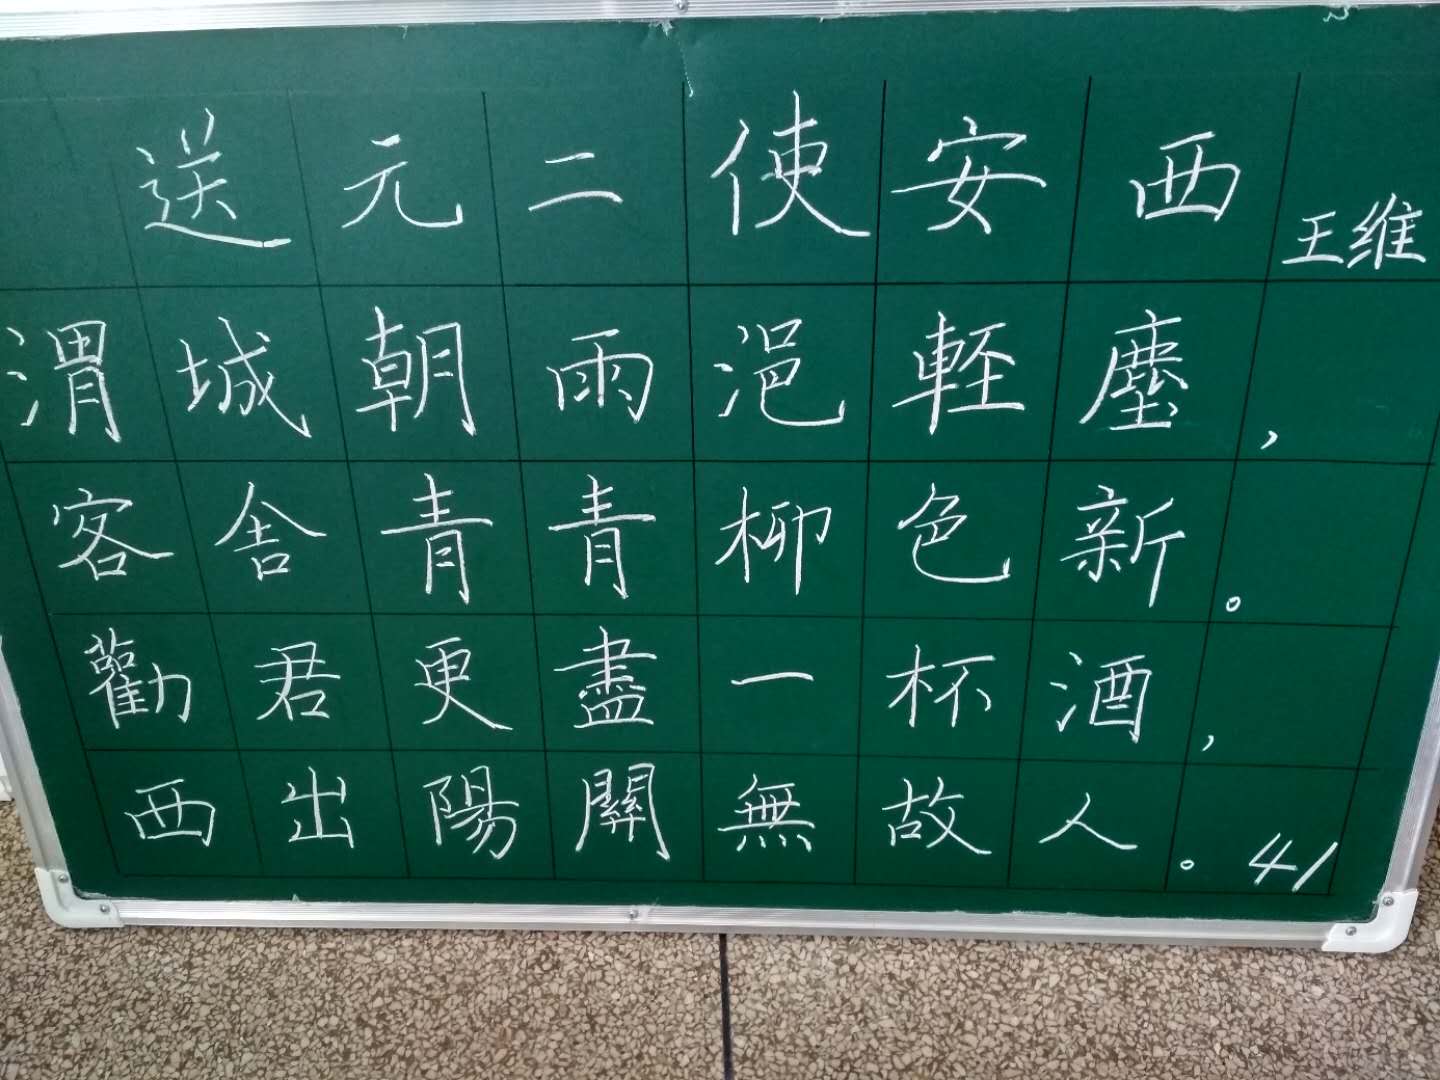 送元二使安西 王维
渭城朝雨浥軽塵,
客舍青青柳色新。
勸君更盡一杯酒,
西出陽關無故人。 41